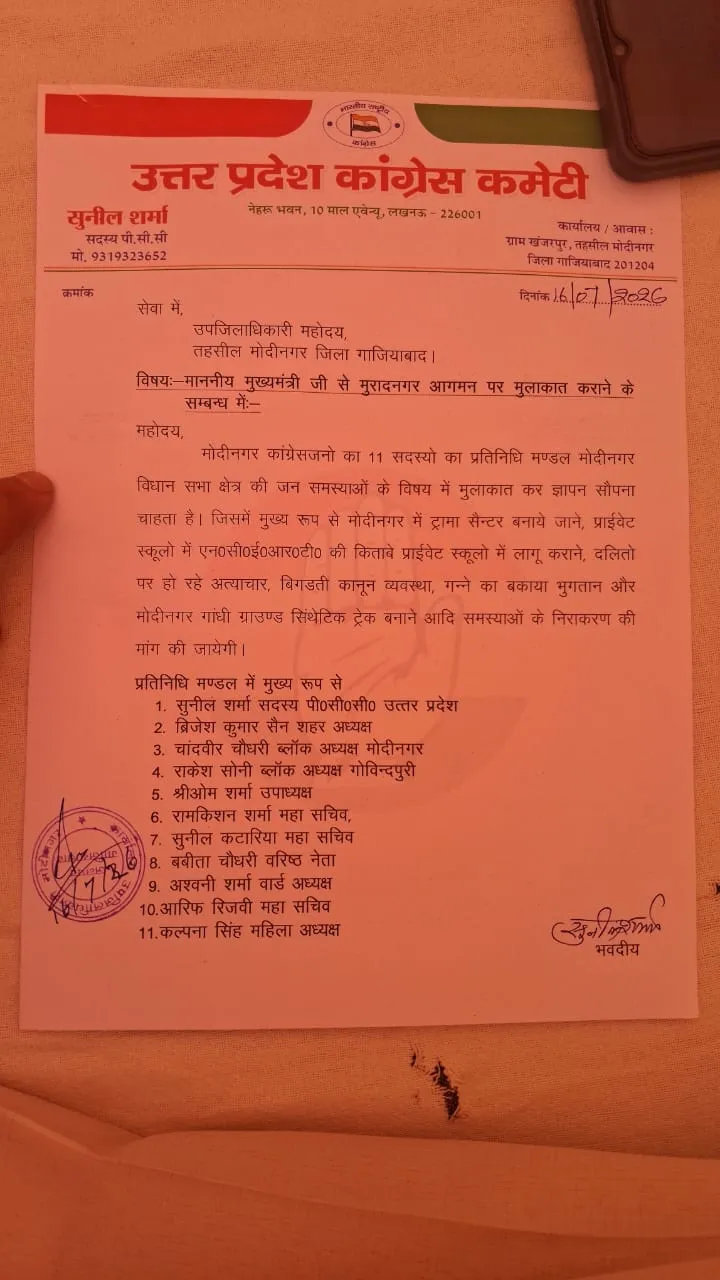 भारतीय राष्ट्रीय
कांग्रेस
उत्तर प्रदेश कांग्रेस कमेटी
नेहरू भवन, 10 माल एवेन्यू, लखनऊ - 226001
सुनील शर्मा
सदस्य पी.सी.सी
मो. 9319323652
कार्यालय / आवास :
ग्राम खंजरपुर, तहसील मोदीनगर
जिला गाजियाबाद 201204
क्रमांक
दिनांक 16/07/2026
सेवा में,
उपजिलाधिकारी महोदय,
तहसील मोदीनगर जिला गाजियाबाद।
विषयः–माननीय मुख्यमंत्री जी से मुरादनगर आगमन पर मुलाकात कराने के
सम्बन्ध मेंः–
महोदय,
मोदीनगर कांग्रेसजनो का 11 सदस्यो का प्रतिनिधि मण्डल मोदीनगर
विधान सभा क्षेत्र की जन समस्याओं के विषय में मुलाकात कर ज्ञापन सौपना
चाहता है। जिसमें मुख्य रूप से मोदीनगर में ट्रामा सैन्टर बनाये जाने, प्राईवेट
स्कूलो में एन0सी0ई0आर0टी0 की किताबे प्राईवेट स्कूलो में लागू कराने, दलितो
पर हो रहे अत्याचार, बिगडती कानून व्यवस्था, गन्ने का बकाया भुगतान और
मोदीनगर गांधी ग्राउण्ड सिंथेटिक ट्रेक बनाने आदि समस्याओं के निराकरण की
मांग की जायेगी।
प्रतिनिधि मण्डल में मुख्य रूप से
1. सुनील शर्मा सदस्य पी0सी0सी0 उत्तर प्रदेश
2. ब्रिजेश कुमार सैन शहर अध्यक्ष
3. चांदवीर चौधरी ब्लॉक अध्यक्ष मोदीनगर
4. राकेश सोनी ब्लॉक अध्यक्ष गोविन्दपुरी
5. श्रीओम शर्मा उपाध्यक्ष
6. रामकिशन शर्मा महा सचिव,
7. सुनील कटारिया महा सचिव
8. बबीता चौधरी वरिष्ठ नेता
9. अश्वनी शर्मा वार्ड अध्यक्ष
10.आरिफ रिजवी महा सचिव
11.कल्पना सिंह महिला अध्यक्ष
सुनील शर्मा
भवदीय